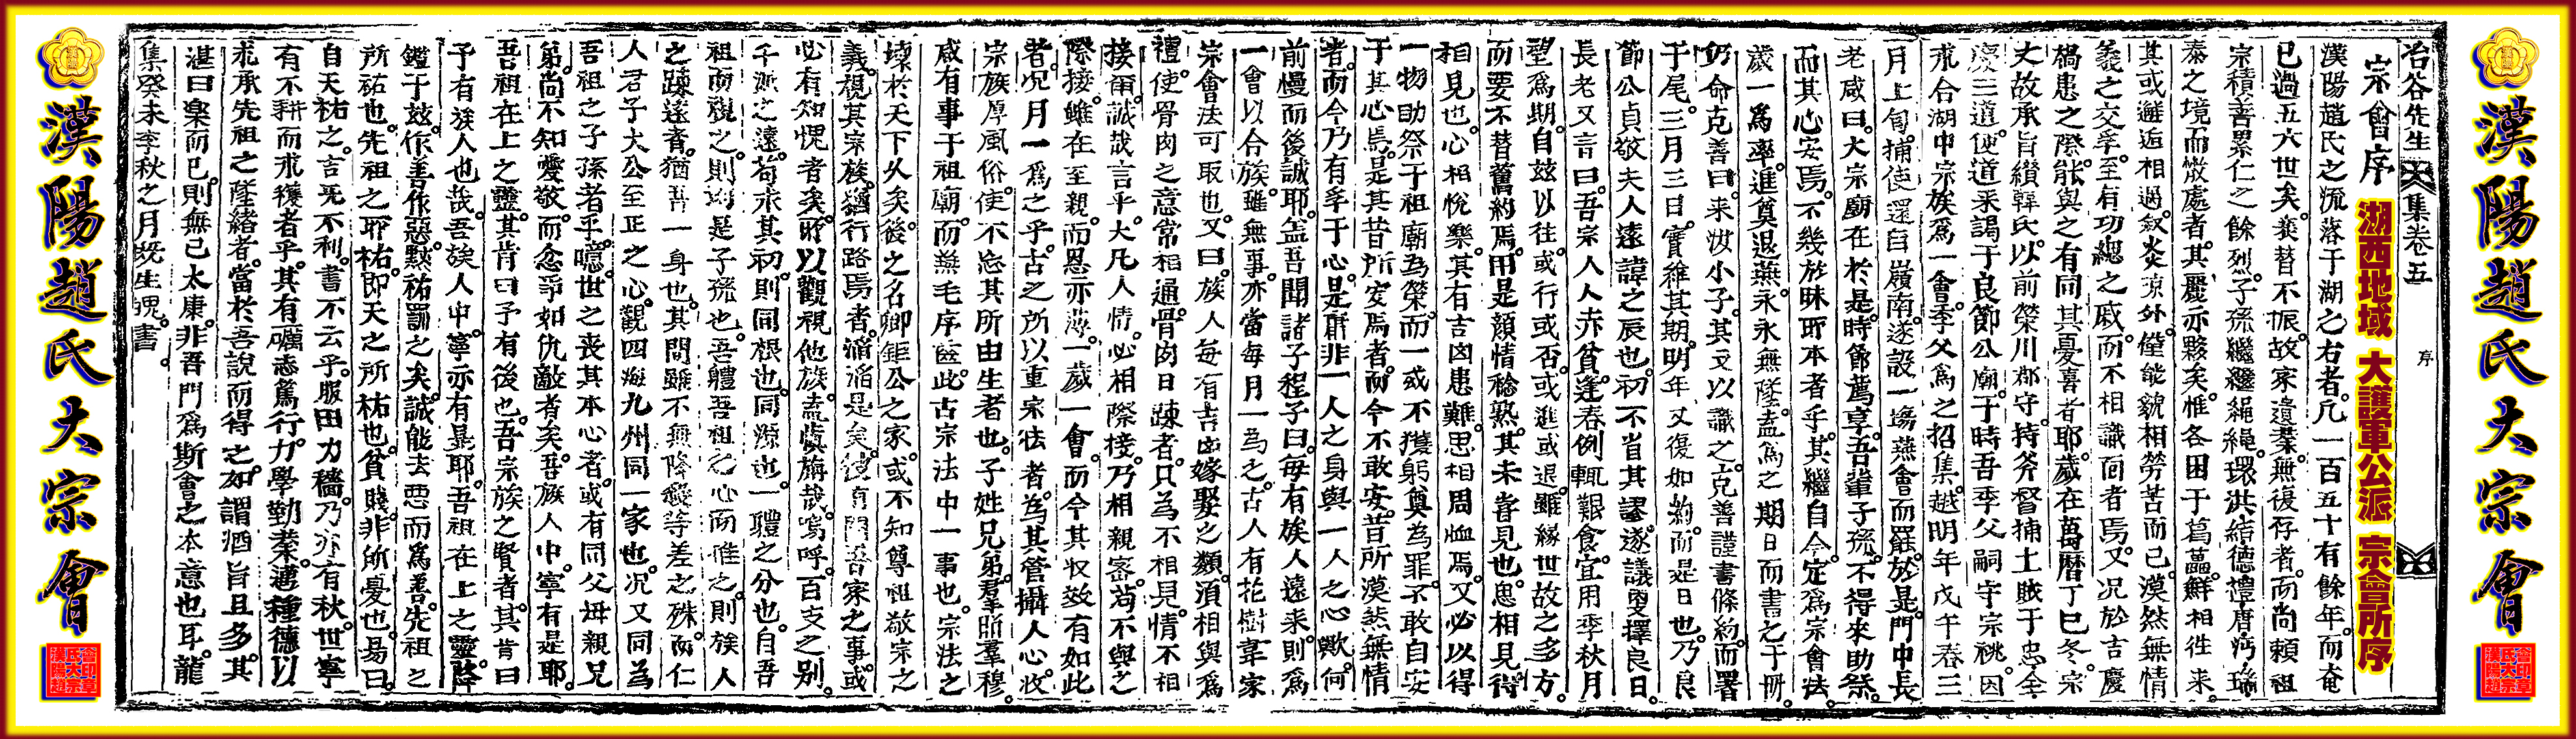 漢陽趙氏大宗會
冶谷先生文集卷五 序
宗會序 湖西地域 大護軍公派 宗會所序
漢陽趙氏之流落于湖之右者。凡一百五十有餘年。而奄
已過五六世矣。衰替不振。故家遺業。無復存者。而尚賴祖
宗積善累仁之餘烈。子孫繼繼繩繩。環洪結德禮唐沔瑞
泰之境而散處者。其麗亦夥矣。惟各困于葛藟。鮮相往來。
其或邂逅相遇。敘炎凉外。僅能貌相勞苦而已。漠然無情
義之交孚。至有功緦之戚。而不相識面者焉。又况於吉慶
禍患之際。能與之有同其憂喜者耶。歲在萬曆丁巳冬。宗
丈故承旨纘韓氏。以前榮川郡守。持斧督捕土賊于忠全
慶三道。使道采謁于良節公廟。于時吾季父嗣守宗祧。因
求合湖中宗族爲一會。季父爲之招集。越明年戊午春三
月上旬。捕使還自嶺南。遂設一塲燕會而罷。於是。門中長
老咸曰。大宗廟在於是。時節薦享。吾輩子孫。不得來助祭。
而其心安焉。不幾於昧耶本者乎。其繼自今。定爲宗會法。
歲一爲率。進奠退燕。永永無墜。盍爲之期日而書之于册。
仍命克善曰。來汝小子。其又以識之。克善謹書條約。而署
于尾。三月三日。實維其期。明年又復如約。而是日也。乃良
節公貞敬夫人遠諱之辰也。初不省其謬。遂議更擇良日。
長老又言曰。吾宗人人赤貧。逢春例輒艱食。宜用季秋月
望爲期。自玆以往。或行或否。或進或退。雖緣世故之多方。
而要不替舊約焉。用是顔情稔熟。其未嘗見也。思相見。得
相見也。心相悅樂。其有吉凶患難。思相周恤焉。又必以得
一物助祭于祖廟爲榮。而一或不獲躬奠爲罪。不敢自安
于其心焉。是其昔所安焉者。而今不敢安。昔所漠然無情
者。而今乃有孚于心。是庸非一人之身與一人之心歟。何
前慢而後誠耶。盍吾聞諸子程子曰。每有族人遠來。則爲
一會以合族。雖無事。亦當每月一爲之。古人有花樹韋家
宗會法可取也。又曰。族人每有吉凶嫁娶之類。須相與爲
禮。使骨肉之意常相通。骨肉日踈者。只爲不相見。情不相
接爾。誠哉言乎。大凡人情。必相際接。乃相親密。苟不與之
際接。雖在至親。而恩亦薄。一歲一會。而今其收效有如此
者。况月一爲之乎。古之所以重宗法者。爲其管攝人心。收
宗族。厚風俗。使不忘其所由生者也。子姓兄弟。羣昭羣穆。
咸有事于祖廟。而燕毛序齒。此古宗法中一事也。宗法之
壞於天下久矣。後之名卿鉅公之家。或不知尊祖敬宗之
義。視其宗族。猶行路焉者。滔滔是矣。使聞吾宗之事。或
必有知愧者矣。所以觀視他族。盍愼旃哉。嗚呼。百支之别。
千派之遠。苟求其初。則同根也。同源也。一體之分也。自吾
祖而視之。則均是子孫也。吾體吾祖之心而推之。則族人
之踈遠者。猶吾一身也。其間雖不無降殺等差之殊。而仁
人君子大公至正之心。觀四海九州同一家也。况又同爲
吾祖之子孫者乎。噫。世之喪其本心者。或有同父母親兄
弟。尚不知愛敬。而忿爭如仇敵者矣。吾族人中。寧有是耶。
吾祖在上之靈。其肯曰予有後也。吾宗族之賢者。其肯曰
予有族人也哉。吾族人中。寧亦有是耶。吾祖在上之靈。降
鑑于玆。作善作惡。黙祐罰之矣。誠能去惡而爲善。先祖之
所祐也。先祖之所祐。卽天之所祐也。貧賤。非所憂也。易曰。
自天祐之。吉无不利。書不云乎。服田力穡。乃亦有秋。世寧
有不耕而求穫者乎。其有礪志篤行。力學勤業。邁種德以
求承先祖之隆緒者。當於吾說而得之。如謂酒旨且多。其
湛曰樂而已。則無已太康。非吾門爲斯會之本意也耳。龍
集癸未季秋之月旣生魄。書。
漢陽趙氏大宗會